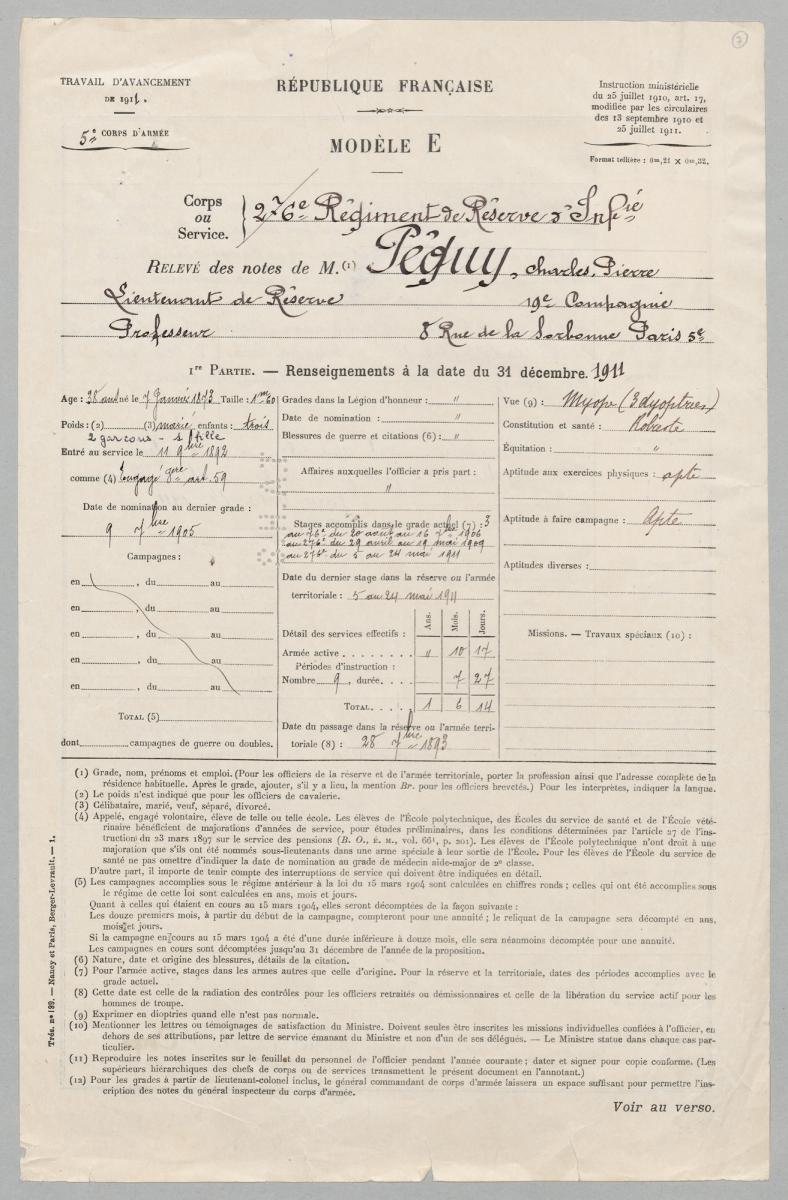 7
TRAVAIL D'AVANCEMENT
DE 1911.
5e CORPS D'ARMÉE
RÉPUBLIQUE FRANÇAISE
MODÈLE E
Instruction ministérielle
du 25 juillet 1910, art. 17,
modifiée par les circulaires
des 13 septembre 1910 et
25 juillet 1911.
Format tellière : 0m,21 × 0m,32.
Corps
ou
Service.
276e Régiment de Réserve d'Infie
RELEVÉ des notes de M.(1) Péguy, Charles, Pierre
Lieutenant de Réserve 19e Compagnie
Professeur 8 Rue de la Sorbonne Paris 5e
1re PARTIE. — Renseignements à la date du 31 décembre. 1911
Age : 38 ans né le 7 Janvier 1873 Taille :
Poids : (2) (3) marié enfants : trois
2 garçons - 1 fille
Entré au service le 11 9bre 1892
comme (4) Engagé art. 59
Date de nomination au dernier grade :
9 7bre 1905
Campagnes :
en , du au
en , du au
en , du au
en , du au
en , du au
TOTAL (5)
dont campagnes de guerre ou doubles.
Grades dans la Légion d'honneur : "
Date de nomination : "
Blessures de guerre et citations (6) : "
Affaires auxquelles l'officier a pris part :
"
Stages accomplis dans le grade actuel (7) : 3
au 76e du 20 août au 16 7bre 1906
au 276e du 29 avril au 19 mai 1909
au 276e du 5 au 24 mai 1911
Date du dernier stage dans la réserve ou l'armée
territoriale : 5 au 24 mai 1911
Ans. Mois. Jours.
Détail des services effectifs :
Armée active " 10 17
Périodes d'instruction :
Nombre 9, durée. 7 27
TOTAL. 1 6 14
Date du passage dans la réserve ou l'armée terri-
toriale (8) : 28 7bre 1893
Vue (9) : Myope (3 dyoptries)
Constitution et santé : Robuste
Équitation : "
Aptitude aux exercices physiques : apte
Aptitude à faire campagne : Apte
Aptitudes diverses :
Missions. — Travaux spéciaux (10) :
(1) Grade, nom, prénoms et emploi. (Pour les officiers de la réserve et de l'armée territoriale, porter la profession ainsi que l'adresse complète de la
résidence habituelle. Après le grade, ajouter, s'il y a lieu, la mention Br. pour les officiers brevetés.) Pour les interprètes, indiquer la langue.
(2) Le poids n'est indiqué que pour les officiers de cavalerie.
(3) Célibataire, marié, veuf, séparé, divorcé.
(4) Appelé, engagé volontaire, élève de telle ou telle école. Les élèves de l'École polytechnique, des Écoles du service de santé et de l'École vété-
rinaire bénéficient de majorations d'années de service, pour études préliminaires, dans les conditions déterminées par l'article 27 de l'ins-
truction du 23 mars 1897 sur le service des pensions (B. O., É. M., vol. 66¹, p. 201). Les élèves de l'École polytechnique n'ont droit à une
majoration que s'ils ont été nommés sous-lieutenants dans une arme spéciale à leur sortie de l'École. Pour les élèves de l'École du service de
santé ne pas omettre d'indiquer la date de nomination au grade de médecin aide-major de 2e classe.
D'autre part, il importe de tenir compte des interruptions de service qui doivent être indiquées en détail.
(5) Les campagnes accomplies sous le régime antérieur à la loi du 15 mars 1904 sont calculées en chiffres ronds ; celles qui ont été accomplies sous
le régime de cette loi sont calculées en ans, mois et jours.
Quant à celles qui étaient en cours au 15 mars 1904, elles seront décomptées de la façon suivante :
Les douze premiers mois, à partir du début de la campagne, compteront pour une annuité ; le reliquat de la campagne sera décompté en ans,
mois et jours.
Si la campagne en cours au 15 mars 1904 a été d'une durée inférieure à douze mois, elle sera néanmoins décomptée pour une annuité.
Les campagnes en cours sont décomptées jusqu'au 31 décembre de l'année de la proposition.
(6) Nature, date et origine des blessures, détails de la citation.
(7) Pour l'armée active, stages dans les armes autres que celle d'origine. Pour la réserve et la territoriale, dates des périodes accomplies avec le
grade actuel.
(8) Cette date est celle de la radiation des contrôles pour les officiers retraités ou démissionnaires et celle de la libération du service actif pour les
hommes de troupe.
(9) Exprimer en dioptries quand elle n'est pas normale.
(10) Mentionner les lettres ou témoignages de satisfaction du Ministre. Doivent seules être inscrites les missions individuelles confiées à l'officier, en
dehors de ses attributions, par lettre de service émanant du Ministre et non d'un de ses délégués. — Le Ministre statue dans chaque cas par-
ticulier.
(11) Reproduire les notes inscrites sur le feuillet du personnel de l'officier pendant l'année courante ; dater et signer pour copie conforme. (Les
supérieurs hiérarchiques des chefs de corps ou de services transmettent le présent document en l'annotant.)
(12) Pour les grades à partir de lieutenant-colonel inclus, le général commandant de corps d'armée laissera un espace suffisant pour permettre l'ins-
cription des notes du général inspecteur du corps d'armée.
Voir au verso.
Trés. nº 199. — Nancy et Paris, Berger-Levrault. — 1.